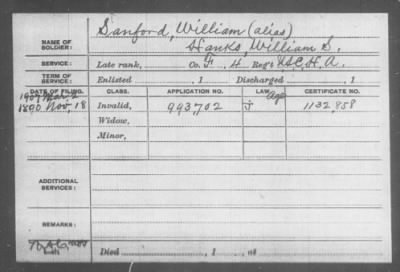 NAME OF SOLDIER: Sanford, William (alias)
Hanks, William S.
SERVICE: Late rank, Co. F, 4 Reg't U.S.C.H.A.
TERM OF SERVICE: Enlisted , 1 Discharged , 1
DATE OF FILING. CLASS. APPLICATION NO. LAW. CERTIFICATE NO.
1907 Mar, 2 Age
1890 Nov, 18 Invalid, 993,702 J 1132,858
Widow,
Minor,
ADDITIONAL SERVICES:
REMARKS:
Died , 1